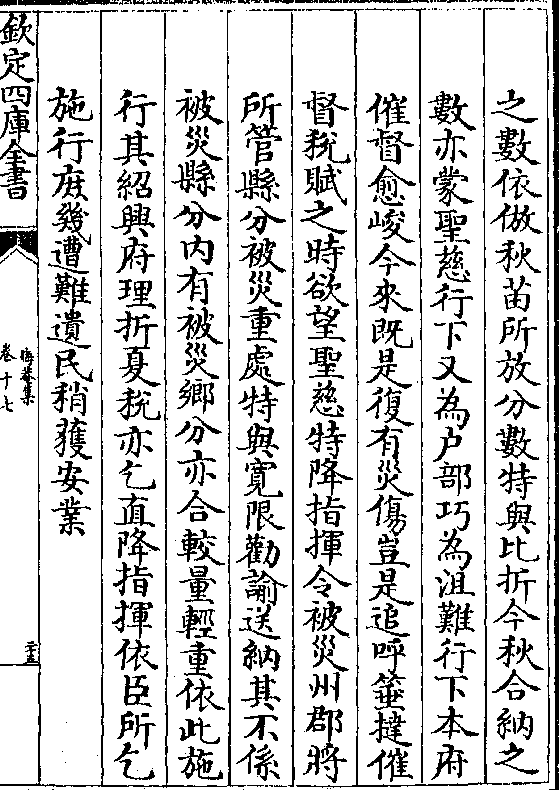 之數依倣秋苗所放分數特與比折今秋合納之
數亦蒙聖慈行下又為户部巧為沮難行下本府
催督愈峻今來既是復有災傷豈是追呼箠撻催
督税賦之時欲望聖慈特降指揮令被災州郡將
所管縣分被災重處特與寛限勸諭送納其不係
被災縣分内有被災鄉分亦合較量輕重依此施
行其紹興府理折夏税亦乞直降指揮依臣所乞
施行庶幾遭難遺民稍獲安業
欽定四庫全書
晦菴集
卷十七